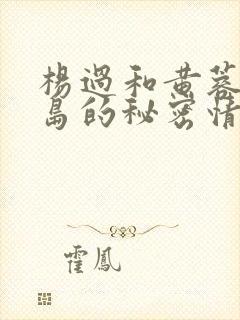 楊過和黄蓉
島的秘密情
霍鳳